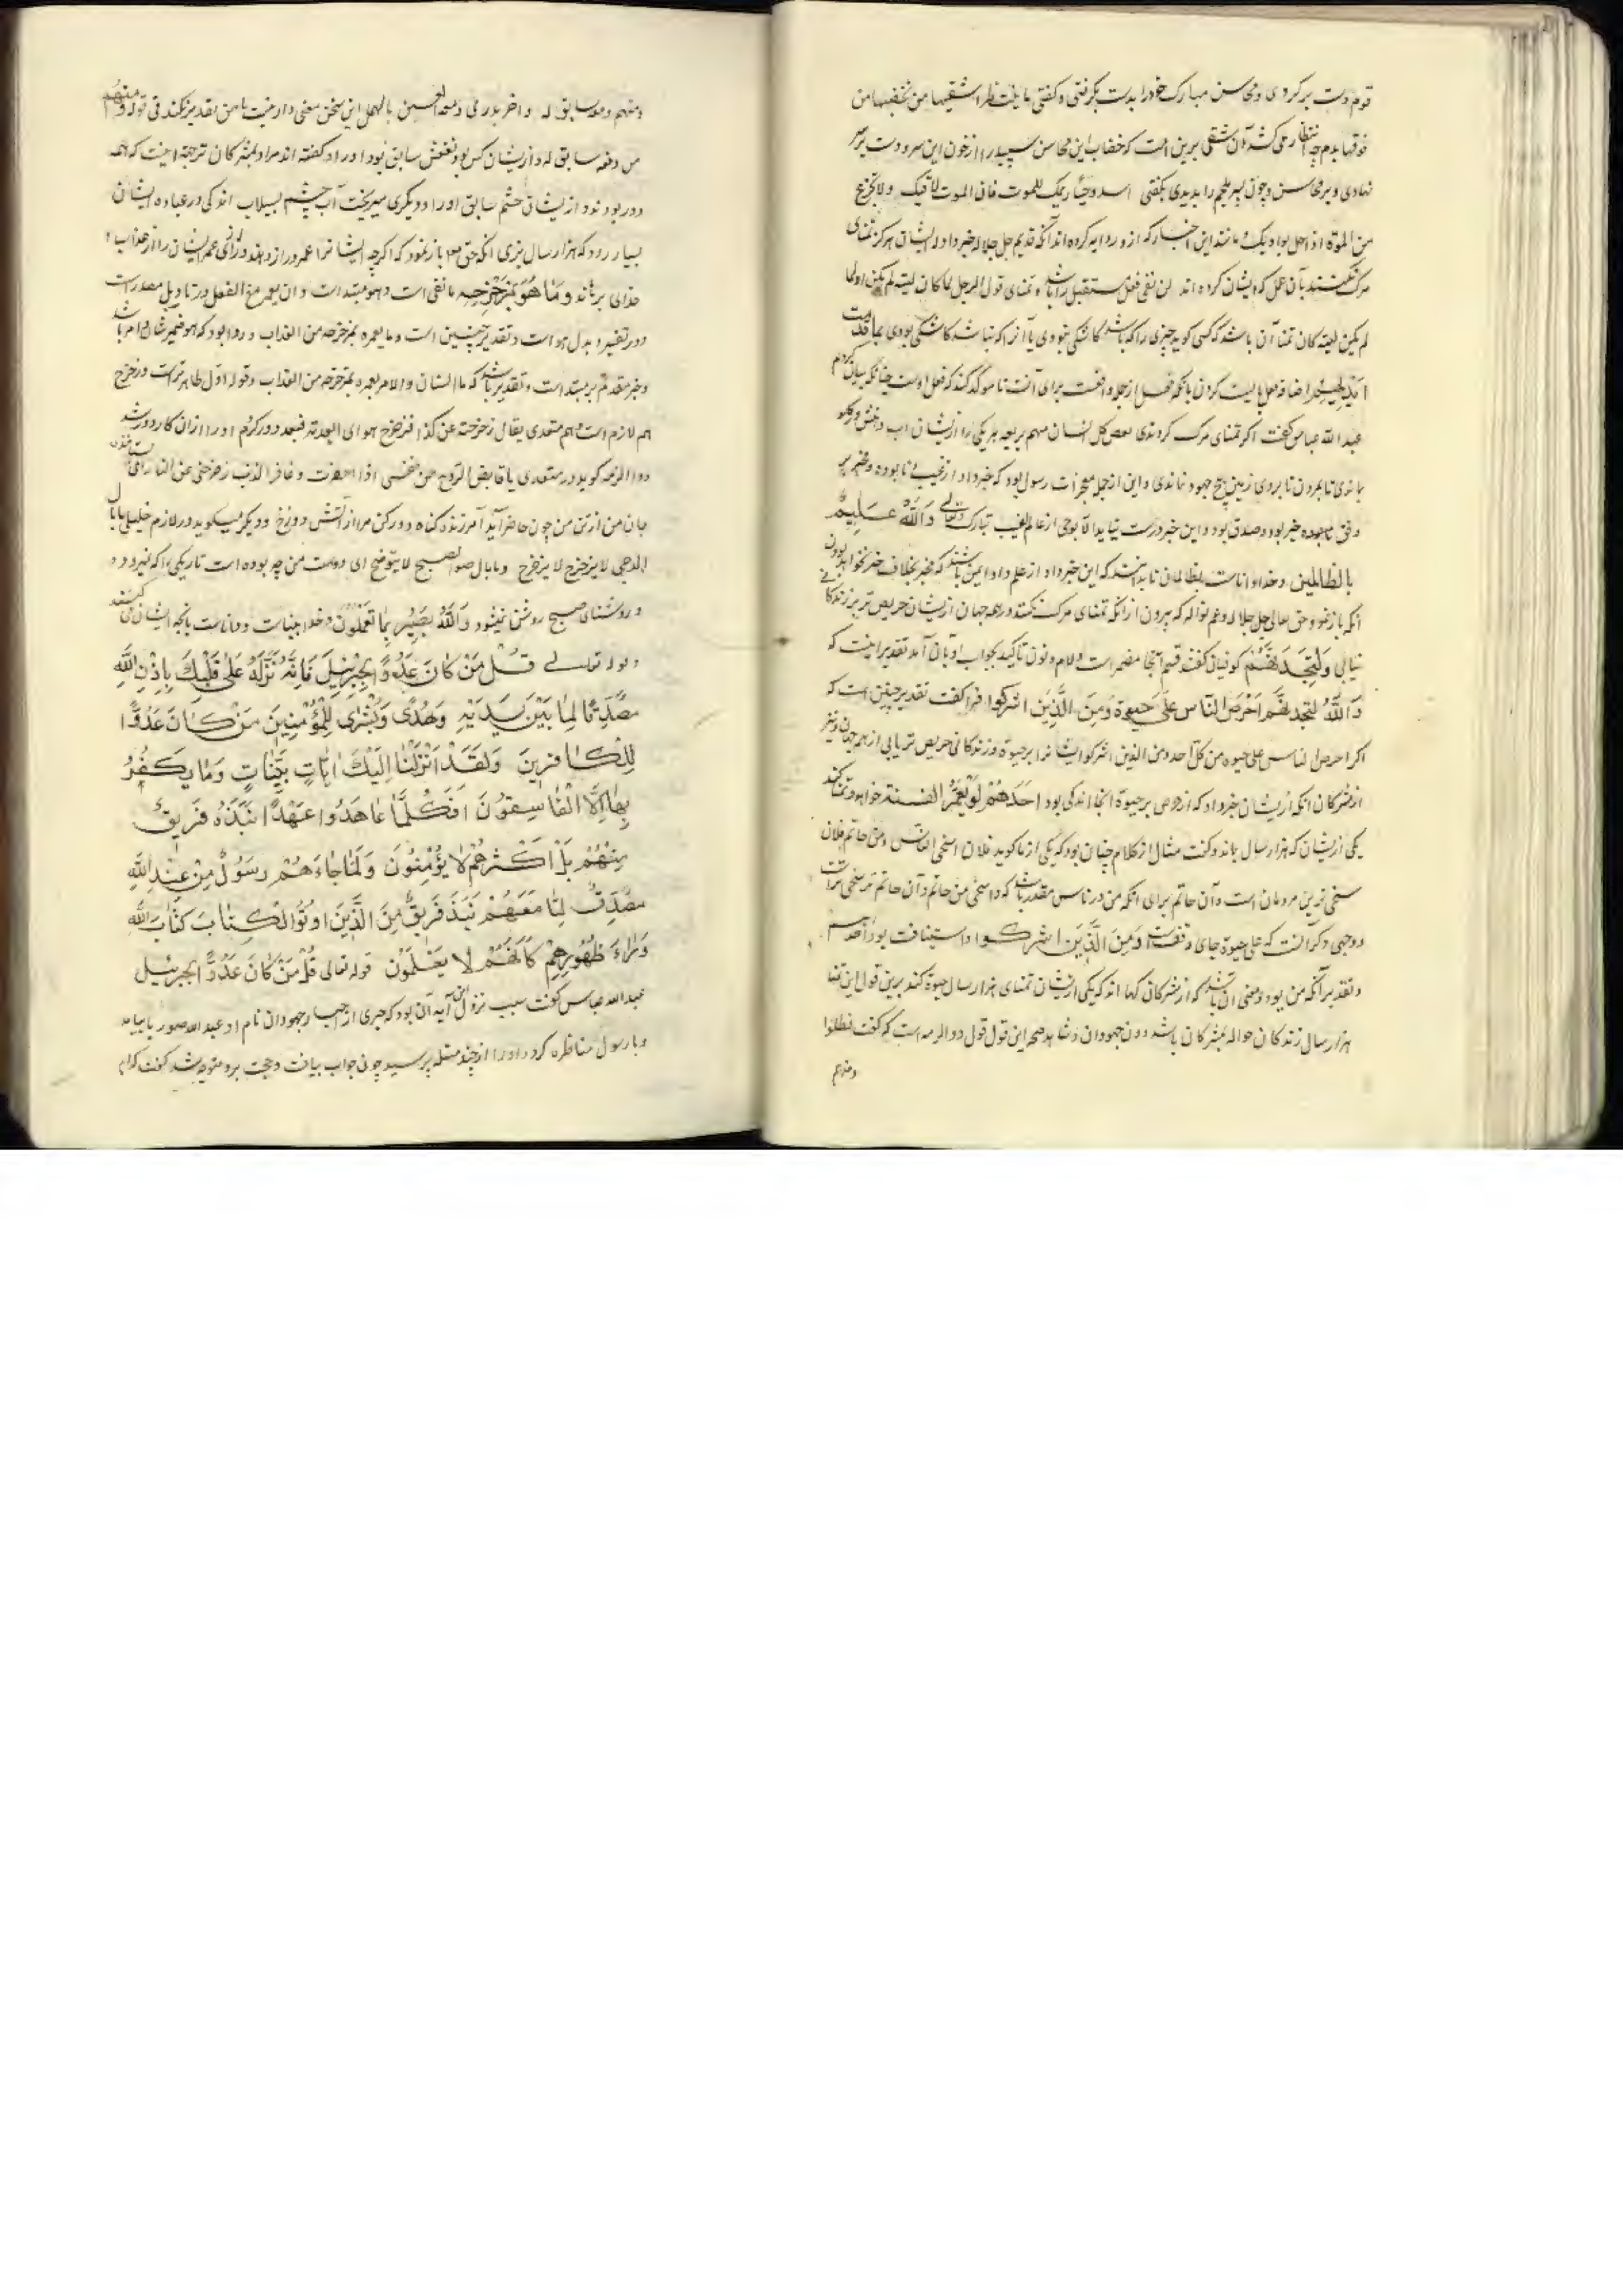 قوم دست بر کردی و محاسن مبارک خود را بدست بگرفتی و کفتی ما ینتظر اشقیها من یخضبها من
فوقها بدم چه انتظار می کشد آن شقی برین امت که خضاب این محاسن سپید را از خون این سر و دست بر سر
نهادی و بر محاسن و چون پسر ملجم را بدیدی بکفتی اشدد حیازیمک للموت فان الموت لاقیک ولا تجزع
من الموت اذا حل بوادیک و مانند این اخبار که ازو روایه کرده اند آنکه قدیم جل جلاله خبر داد له ایشان هرکز تمنای
مرک نکنند بآن عمل که ایشان کرده اند لن نفی فعل مستقبل را باشد و تمنای قول الرجل لما کان لیته لم یکن او لما
لم یکن لیته کان تمنا آن باشد که کسی کوید چیزی را که باشد کاشکی نبودی یا آنرا که نباشد کاشکی بودی بما قدمت
ایدیهم اضافه فعل با دست کردن با آنکه فعل از جمله واقعست برای آنست تا موکد کند که فعل اوست چنانکه بیان کردم
عبد الله عباس کفت اکر تمنای مرک کردندی
بماندی تا بمردن تا بر روی زمین هیچ جهود نماندی و این از جمله معجزات رسول بود که خبر داد از غیب نابوده و مخبر بر
وفق خبر بود و صدق بود و این خبر درست نیاید الا بوحی از عالم الغیب تبارک و تعالی والله علیم
بالظالمین و خدا داناست بظالمان تا بدانند که این خبر داد از علم داد و ایمن باشد که مخبر بخلاف خبر نخواهد بودن
آنکه باز نمود حق تعالی جل جلاله و عم نواله که بیرون از آنکه تمنای مرک نکنند در همه جهان ازیشان حریص تر بر زندکانی
نیابی ولتجدنهم کوفیان کفتند قسم اینجا مضمر است و لام و نون تاکید بجواب او بان آمد تقدیر اینست که
والله لتجدنهم احرص الناس علی حیوة ومن الذین اشرکوا فرا کفت تقدیر چنین است که
احرص الناس علی حیوة من کل احد ومن الذین اشرکوا ایشانرا بر حیوة و زندکانی حریص تر یابی از همه جهان و نیز
از مشرکان آنکه ازیشان خبر داد که از حرص بر حیوة انجا اند که بود احدهم لو یعمر الف سنة خواهد و تمنا کند
یکی ازیشان که هزار سال بماند و کفت مثال از کلام چنان بود که یکی از ما کوید فلان اسخی الناس ومن حاتم فلان
سخی ترین مردمان است و آن حاتم برای آنکه من در ناس مقدر باشد که و اسخی من حاتم و آن حاتم
و وجهی دکر آنست که علی حیوة جای وقفست و من الذین اشرکوا و استیناف بود
و تقدیر آنکه من یود و معنی آن باشد که از مشرکان کسها اند که یکی ازیشان تمنای هزار سال حیوة کند برین قول این تمنا
هزار سال زندکانی حواله بمشرکان باشد دون جهودان و شاهد صحه این قول قول ذوالرمه است که کفت فظلوا
و منهم
و منهم دمعه سابق له و اخر یذری دمعة العین بالهمل این سخن معنی دار نیست تا من تقدیر نکند فی قوله و منهم
من دمعه سابق له و ازیشان کس بود
دور بودند و ازیشان چشم سابق او را و دیکری میریخت آب چشم بسیلاب
بسیار رود که هزار سال بزی آنکه حق تعالی باز نمود که اکرچه ایشانرا عمر دراز دهند درازی عمر ایشان را از عذاب
خدای نرهاند وما هو بمزحزحه ما نفی است و هو مبتدا است و ان یعمر مع الفعل در تاویل مصدر است
و در تفسیر و بدل هو است و تقدیر چنین است و ما یعمره بمزحزحه من العذاب و روا بود که هو ضمیر شان و امر باشد
و خبر مقدم بر مبتدا است و تقدیر باشد که ما الشان و الامر یعمره بمزحزحه من العذاب و قول اول ظاهر تر است و زحزح
هم لازم است و هم متعدی یقال زحزحته عن کذا فتزحزح هو ای ابعدته فبعد دور کردم او را از آن کار دور شد
ذو الرمه کوید در متعدی یا قابض الروح عن نفسی اذا احتضرت و غافر الذنب زحزحنی عن النار
جان من از تن من چون حاضر آید آمرزنده کناه دور کن مرا از آتش دوزخ و دیکر میکوید در لازم خلیلی ما بال
الدجی لا یزحزح و ما بال ضوء الصبح لا یتوضح ای دوست من چه بوده است تاریکی را که نمیرود
و روشنای صبح روشن نمیشود والله بصیر بما تعملون و خدا بیناست و داناست بانچه ایشان می کنند
قوله تعالی قل من کان عدوا لجبریل فانه نزله علی قلبک باذن الله
مصدقا لما بین یدیه وهدی وبشری للمؤمنین من کان عدوا
للکافرین ولقد انزلنا الیک ایات بینات وما یکفر
بها الا الفاسقون اوکلما عاهدوا عهدا نبذه فریق
منهم بل اکثرهم لا یؤمنون ولما جاءهم رسول من عند الله
مصدق لما معهم نبذ فریق من الذین اوتوا الکتاب کتاب الله
وراء ظهورهم کانهم لا یعلمون قوله تعالی قل من کان عدوا لجبریل
عبد الله عباس کفت سبب نزول این آیه آن بود که حبری از احبار جهودان نام او عبد الله صوریا بیامد
و با رسول مناظره کرد و او را از چند مسئله پرسید چون جواب بیافت و حجت برو متوجه شد کفت کدام